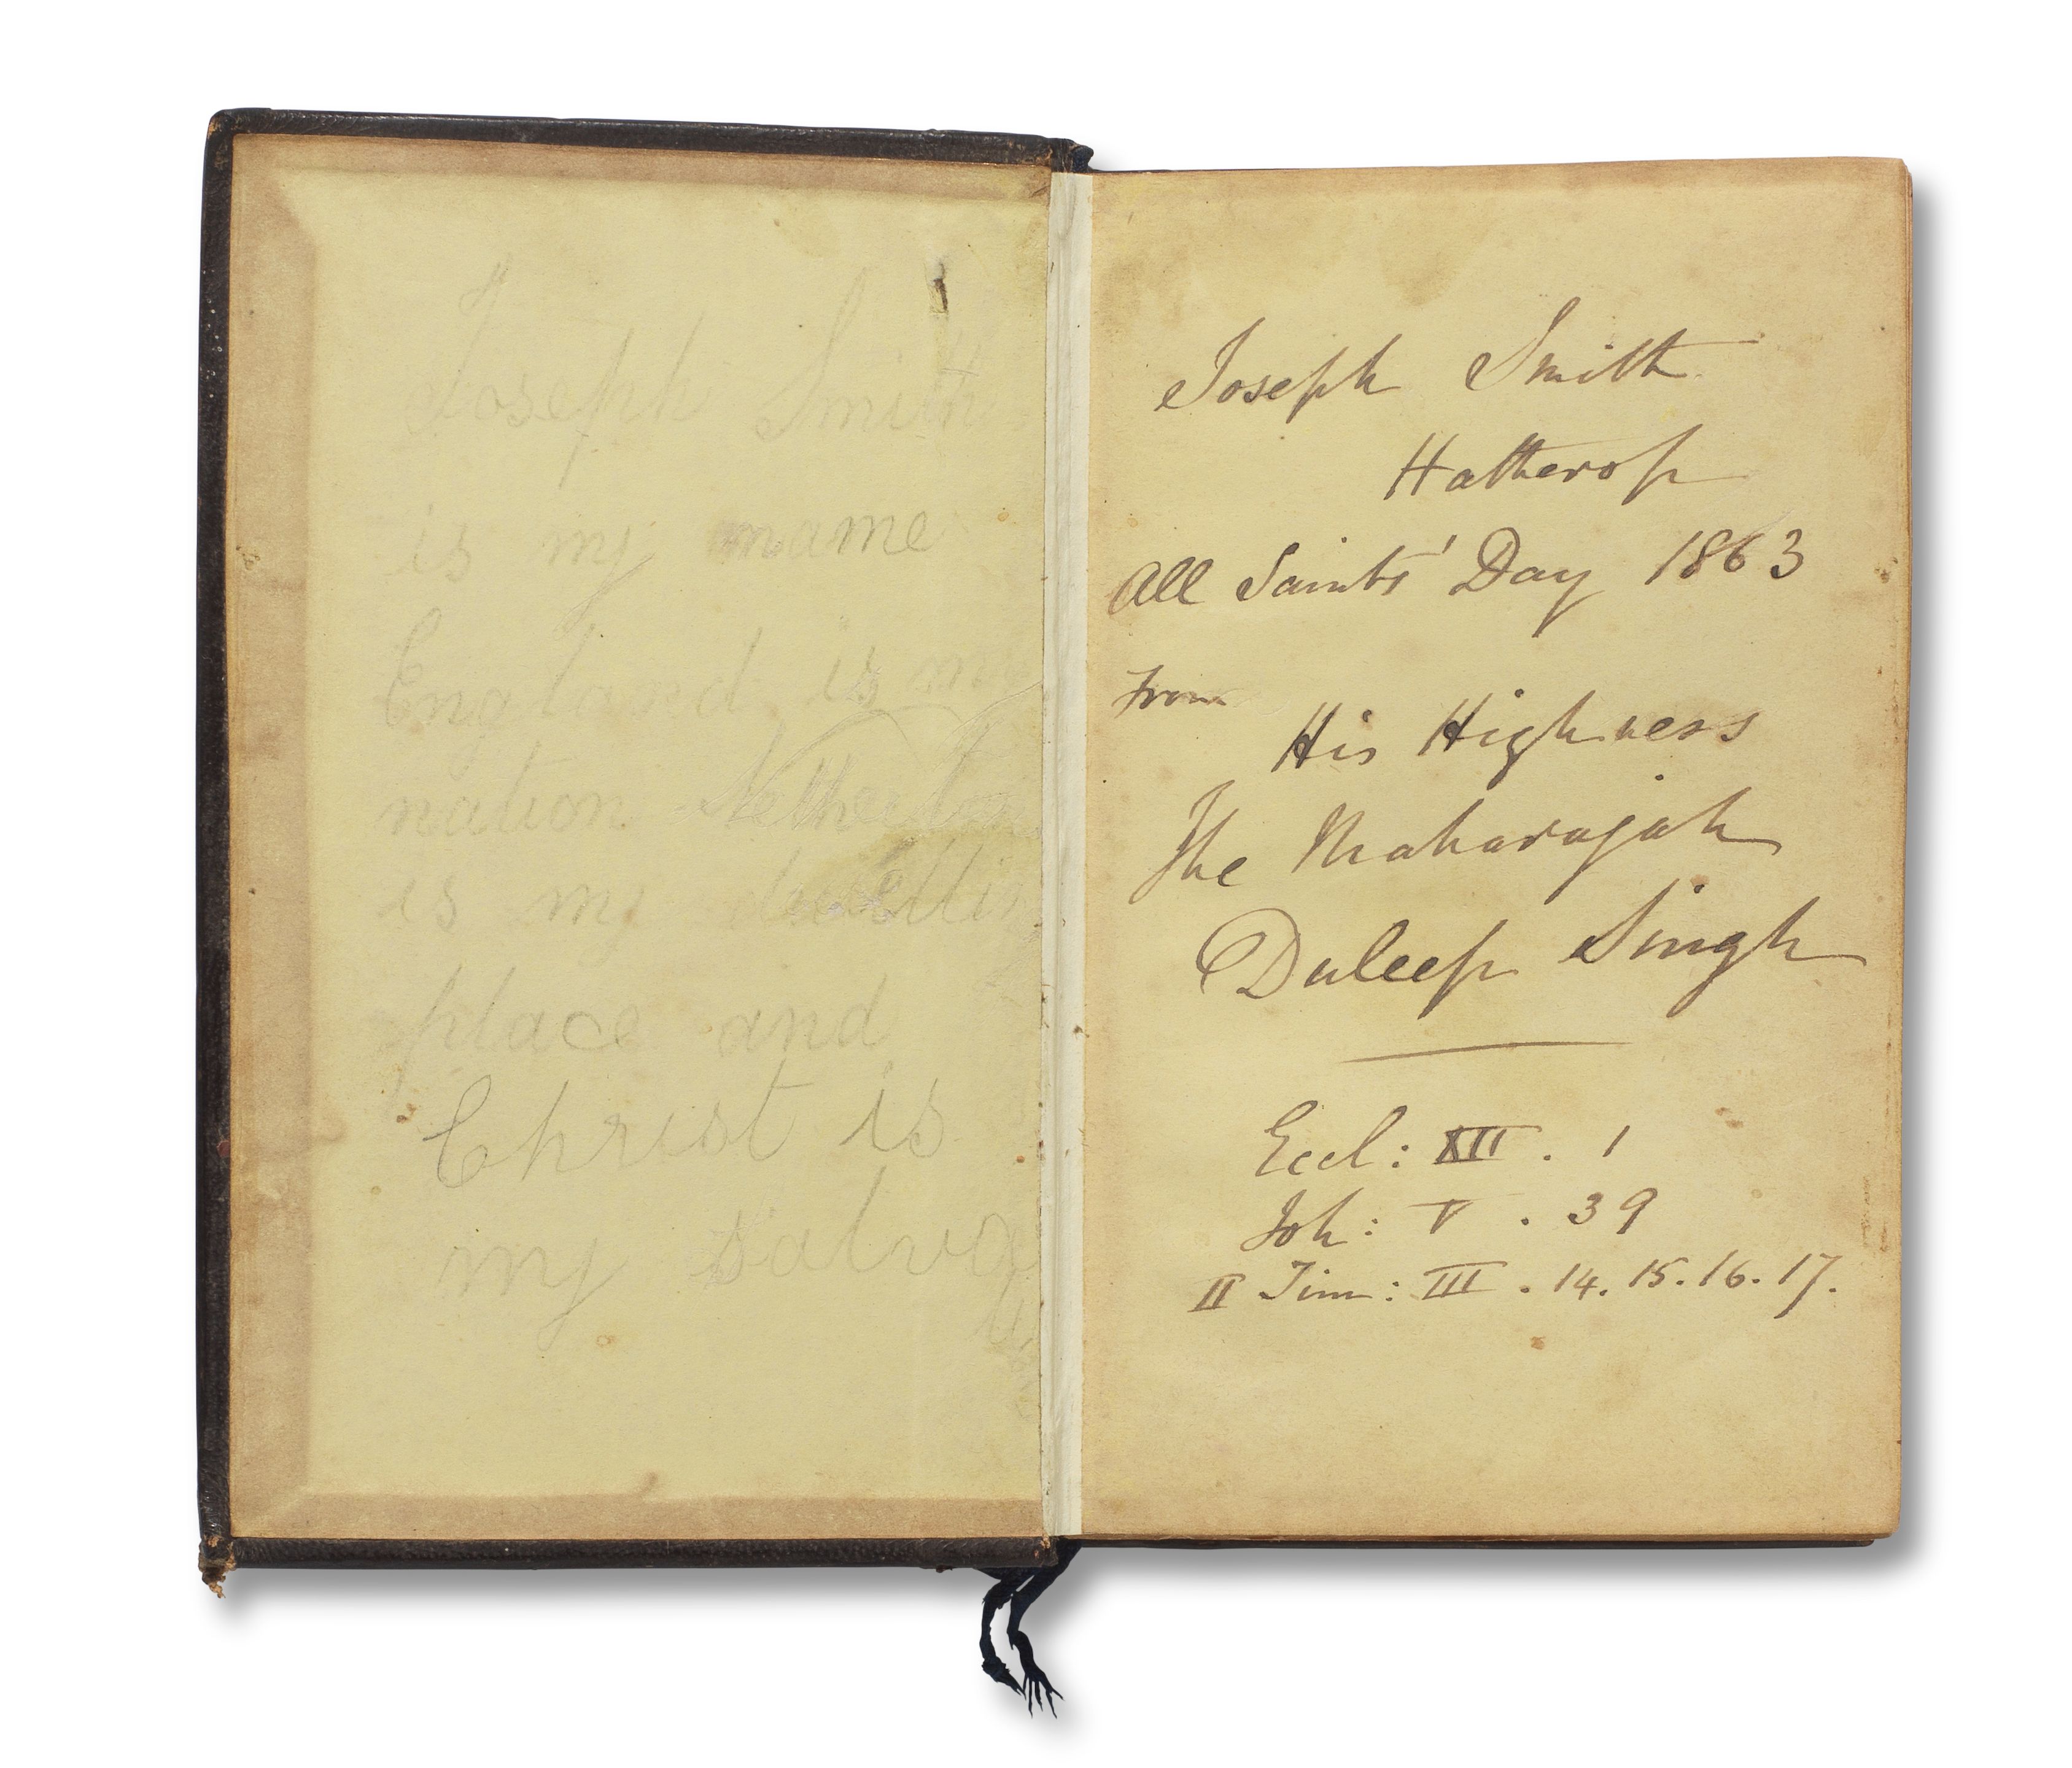 Joseph Smith
is my name
England is my
nation
is my dwellin
place and
Christ is
my salva
Joseph Smith
Hatherop
All Saints' Day 1863
From
His Highness
The Maharajah
Duleep Singh
Eccl: XII . 1
Joh: V . 39
II Tim: III . 14. 15. 16. 17.